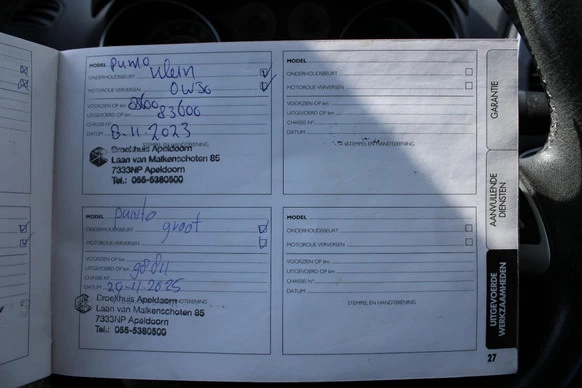 MODEL punto
ONDERHOUDSBEURT klein
MOTOROLIE VERVERSEN 0W30
VOORZIEN OP km
UITGEVOERD OP km 83600
CHASSIS N°
DATUM 8-11-2023
STEMPEL EN HANDTEKENING
Broekhuis Apeldoorn
Laan van Malkenschoten 85
7333NP Apeldoorn
Tel.: 055-5380500
MODEL punto
ONDERHOUDSBEURT groot
MOTOROLIE VERVERSEN
VOORZIEN OP km
UITGEVOERD OP km
CHASSIS N°
DATUM
STEMPEL EN HANDTEKENING
Broekhuis Apeldoorn
Laan van Malkenschoten 85
7333NP Apeldoorn
Tel.: 055-5380500
MODEL
ONDERHOUDSBEURT
MOTOROLIE VERVERSEN
VOORZIEN OP km
UITGEVOERD OP km
CHASSIS N°
DATUM
STEMPEL EN HANDTEKENING
MODEL
ONDERHOUDSBEURT
MOTOROLIE VERVERSEN
VOORZIEN OP km
UITGEVOERD OP km
CHASSIS N°
DATUM
STEMPEL EN HANDTEKENING
GARANTIE
AANVULLENDE
DIENSTEN
UITGEVOERDE
WERKZAAMHEDEN
27